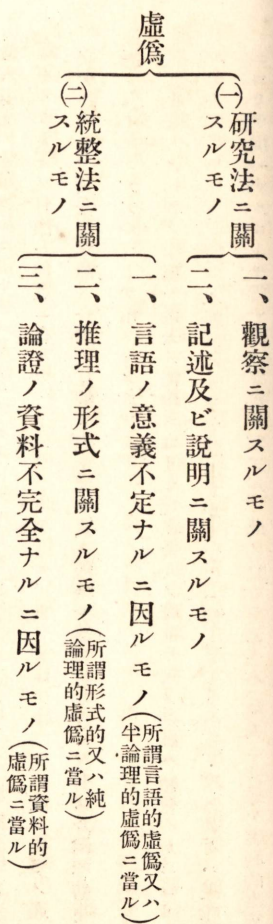 虛僞
㈠研究法ニ關スルモノ
一、觀察ニ關スルモノ
二、記述及ビ說明ニ關スルモノ
㈡統整法ニ關スルモノ
一、言語ノ意義不定ナルニ因ルモノ(所謂言語的虛僞又ハ半論理的虛僞ニ當ル)
二、推理ノ形式ニ關スルモノ(所謂形式的又ハ純論理的虛僞ニ當ル)
三、論證ノ資料不完全ナルニ因ルモノ(所謂資料的虛僞ニ當ル)